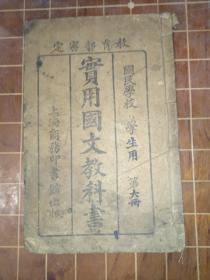 教育部審定
國民學校 學生用 第六冊
實用國文教科書
上海商務印書館出版